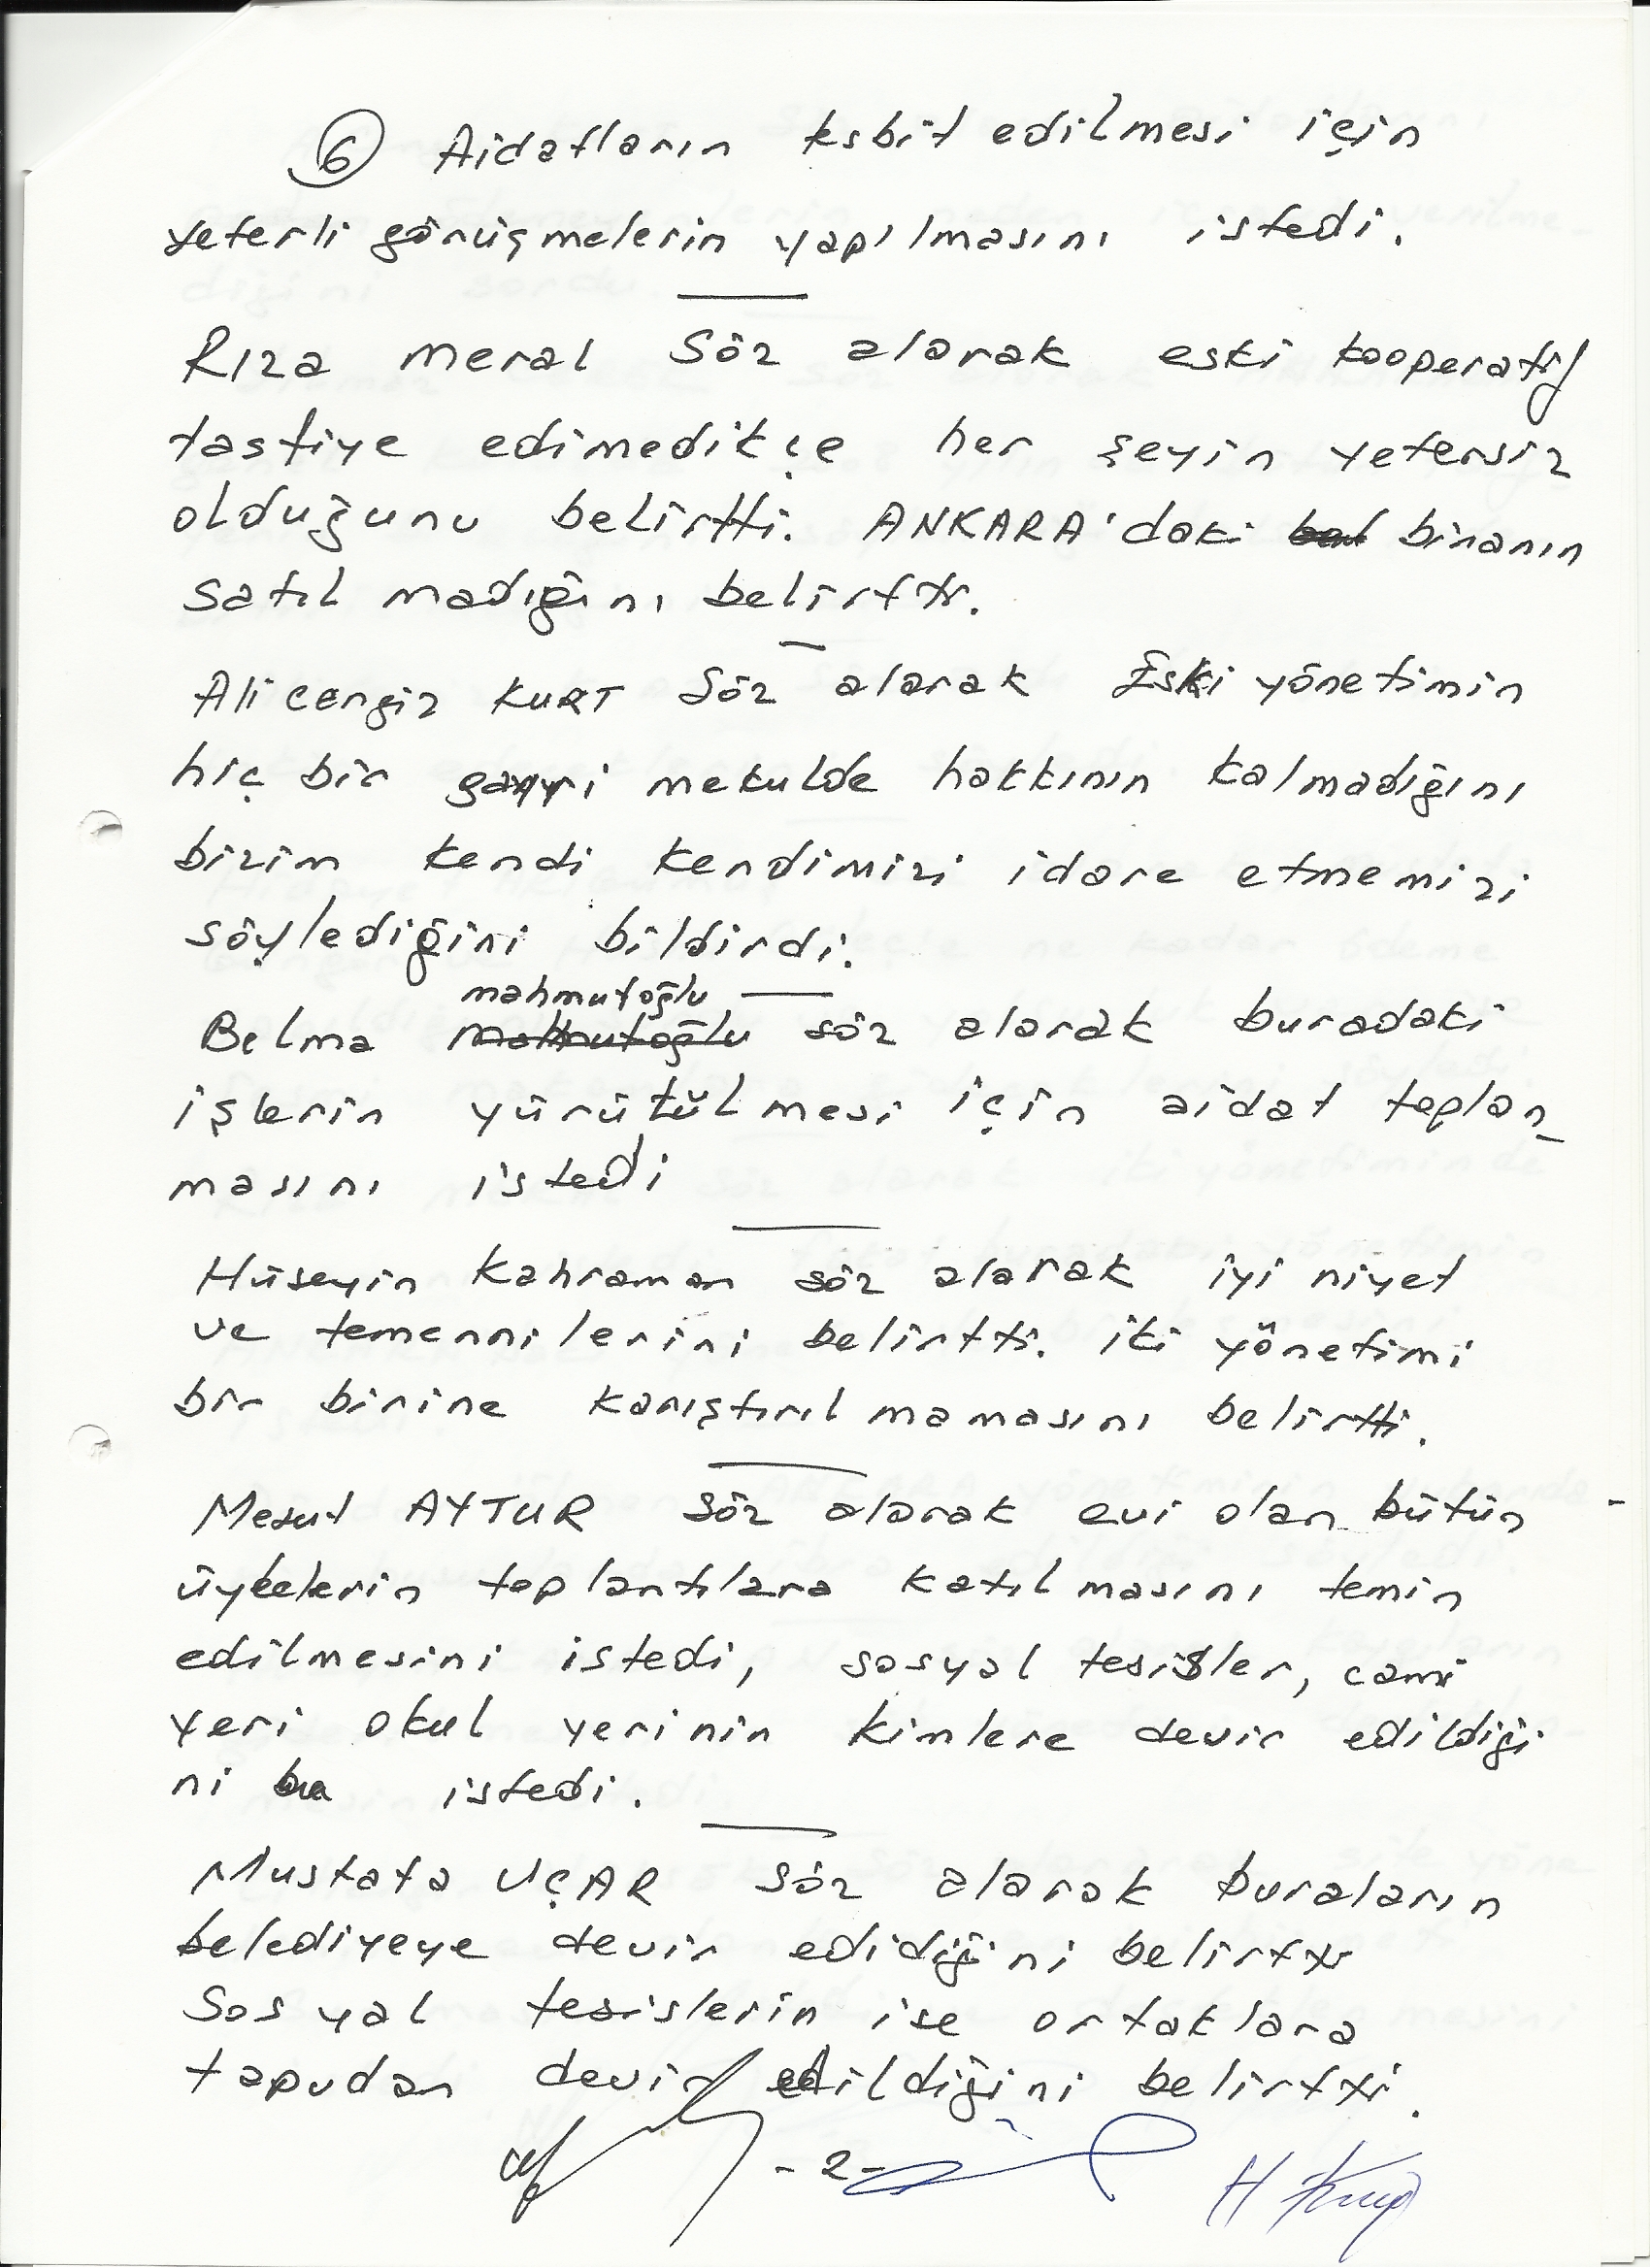 ⑥ Aidatların tesbit edilmesi için
yeterli görüşmelerin yapılmasını istedi.
Rıza Meral Söz alarak eski kooperatif
tasfiye edimedikçe her şeyin yetersiz
olduğunu belirtti. ANKARA'daki binanın
satıl madığını belirtti.
Ali cengiz KURT Söz alarak Eski yönetimin
hiç bir gayri mekulde hakkının kalmadığını
bizim kendi kendimizi idare etmemizi
söylediğini bildirdi.
mahmutoğlu
Belma Mahmutoğlu söz alarak buradaki
işlerin yürütülmesi için aidat toplan_
masını istedi
Hüseyin Kahraman söz alarak iyi niyet
ve temennilerini belirtti. iki yönetimi
bir birine karıştırıl mamasını belirtti.
Mesut AYTUR söz alarak evi olan bütün
üyelerin toplantılara katıl masını temin
edilmesini istedi, sosyal tesisler, cami
yeri okul yerinin kimlere devir edildiği
ni istedi.
Mustafa UÇAR söz alarak buraların
belediyeye devir edidiğini belirtti
Sosyal tesislerin ise ortaklara
tapudan devir edildiğini belirtti.
- 2 -